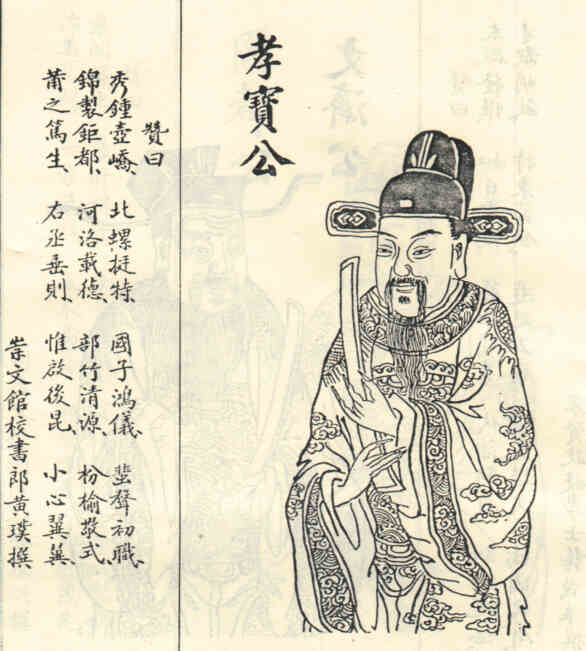 孝寶公
贊曰
秀鍾壺嶠、北螺挺特、國子鴻儀、蜚聲初職、
錦製鉅都、河洛載德、部竹清源、枌榆敬式、
莆之篤生、右丞垂則、惟啟後昆、小心翼翼、
崇文館校書郎黃璞撰